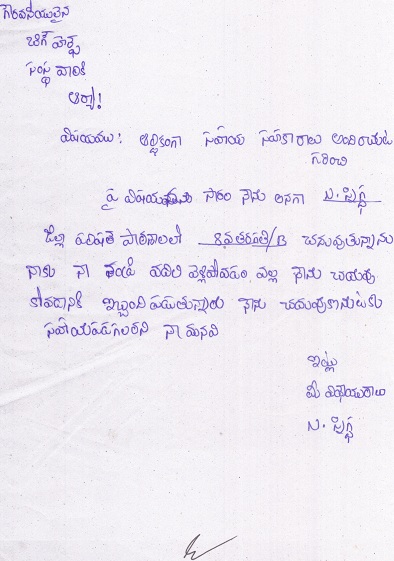 గౌరవనీయులైన
బిగ్ హెల్ప్
సంస్థ వారికి
ఆర్యా!
విషయము: ఆర్థికంగా సహాయ సహకారాలు అందించుట
గురించి
పై విషయము సారం నేను అనగా
జిల్లా పరిషత్ పాఠశాలలో 8వతరగతి/B చదువుతున్నాను
నాకు నా తండ్రి వదిలి వెళ్లిపోవడం వల్ల నేను చదువు
కోవడానికి ఇబ్బంది పడుతున్నాను నేను చదువుకొనుటకు
సహాయపడగలరని నా మనవి
ఇట్లు
మీ విధేయురాలు